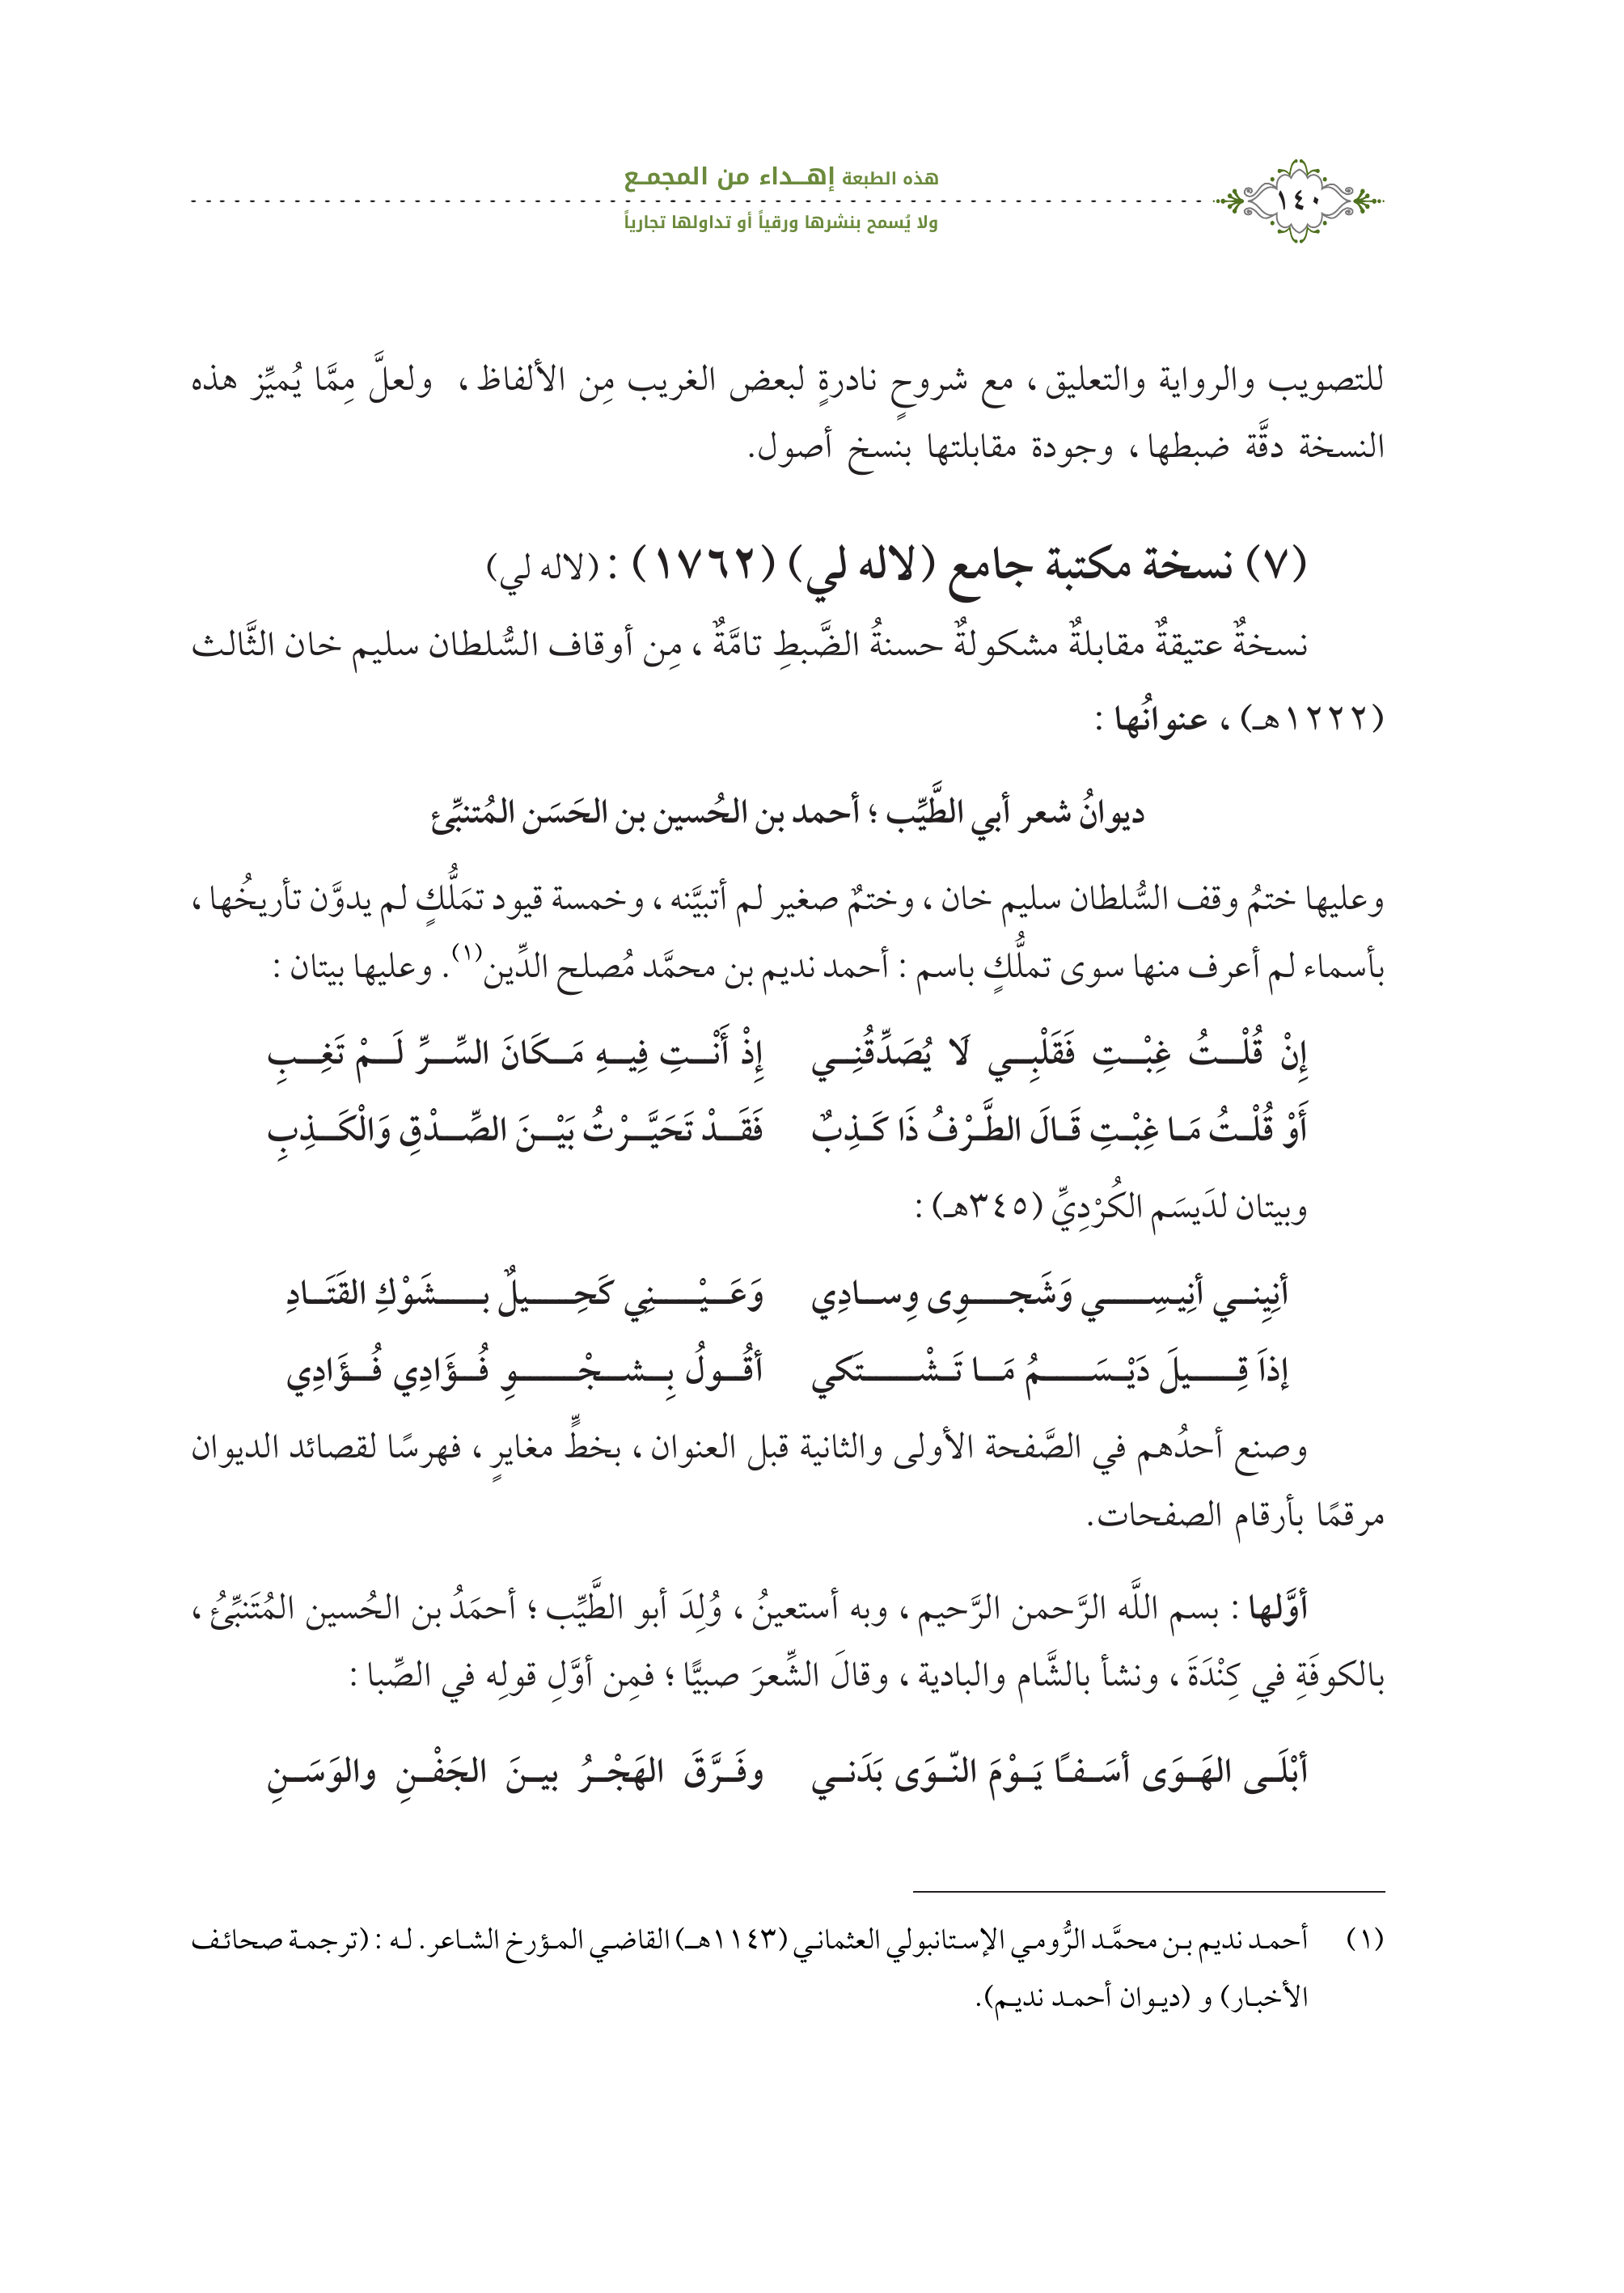 ١٤٠
هذه الطبعة إهــداء من المجمـع
ولا يُسمح بنشرها ورقياً أو تداولها تجارياً
للتصويب والرواية والتعليق، مع شروحٍ نادرةٍ لبعض الغريب مِن الألفاظ، ولعلَّ مِمَّا يُميِّز هذه
النسخة دقَّة ضبطها، وجودة مقابلتها بنسخ أصول.
(٧) نسخة مكتبة جامع (لاله لي) (١٧٦٢) : (لاله لي)
نسخةٌ عتيقةٌ مقابلةٌ مشكولةٌ حسنةُ الضَّبطِ تامَّةٌ، مِن أوقاف السُّلطان سليم خان الثَّالث
(١٢٢٢هـ)، عنوانُها :
ديوانُ شعر أبي الطَّيِّب؛ أحمد بن الحُسين بن الحَسَن المُتنبِّئ
وعليها ختمُ وقف السُّلطان سليم خان، وختمٌ صغير لم أتبيَّنه، وخمسة قيود تمَلُّكٍ لم يدوَّن تأريخُها،
بأسماء لم أعرف منها سوى تملُّكٍ باسم : أحمد نديم بن محمَّد مُصلح الدِّين(١). وعليها بيتان :
إِنْ قُلْــتُ غِبْــتِ فَقَلْبِــي لَا يُصَدِّقُنِــي إِذْ أَنْــتِ فِيــهِ مَــكَانَ السِّــرِّ لَــمْ تَغِــبِ
أَوْ قُلْـتُ مَـا غِبْـتِ قَـالَ الطَّـرْفُ ذَا كَـذِبٌ فَقَــدْ تَحَيَّــرْتُ بَيْــنَ الصِّــدْقِ وَالْكَــذِبِ
وبيتان لدَيسَم الكُرْدِيِّ (٣٤٥هـ) :
أنِينــي أنِيـسِــي وَشَجــوِى وِســادِي وَعَــيْــنِي كَحِــيلٌ بــشَوْكِ القَتَــادِ
إذاَ قِــيلَ دَيْـسَــمُ مَــا تَـشْــتَكي أقُــولُ بِــشــجْــوِ فُــؤَادِي فُــؤَادِي
وصنع أحدُهم في الصَّفحة الأولى والثانية قبل العنوان، بخطٍّ مغايرٍ، فهرسًا لقصائد الديوان
مرقمًا بأرقام الصفحات.
أوَّلها : بسم اللَّه الرَّحمن الرَّحيم، وبه أستعينُ، وُلِدَ أبو الطَّيِّب؛ أحمَدُ بن الحُسين المُتَنبِّئُ،
بالكوفَةِ في كِنْدَةَ، ونشأ بالشَّام والبادية، وقالَ الشِّعرَ صبيًّا؛ فمِن أوَّلِ قولِه في الصِّبا :
أبْلَـى الهَـوَى أسَـفـًا يَـوْمَ النّـوَى بَدَنـي وفَـرَّقَ الهَجْـرُ بيـنَ الجَفْـنِ والوَسَـنِ
(١) أحمـد نديم بـن محمَّـد الرُّومـي الإسـتانبولي العثمانـي (١١٤٣هـ) القاضـي المـؤرخ الشـاعر. لـه : (ترجمـة صحائـف
الأخبـار) و (ديـوان أحمـد نديـم).